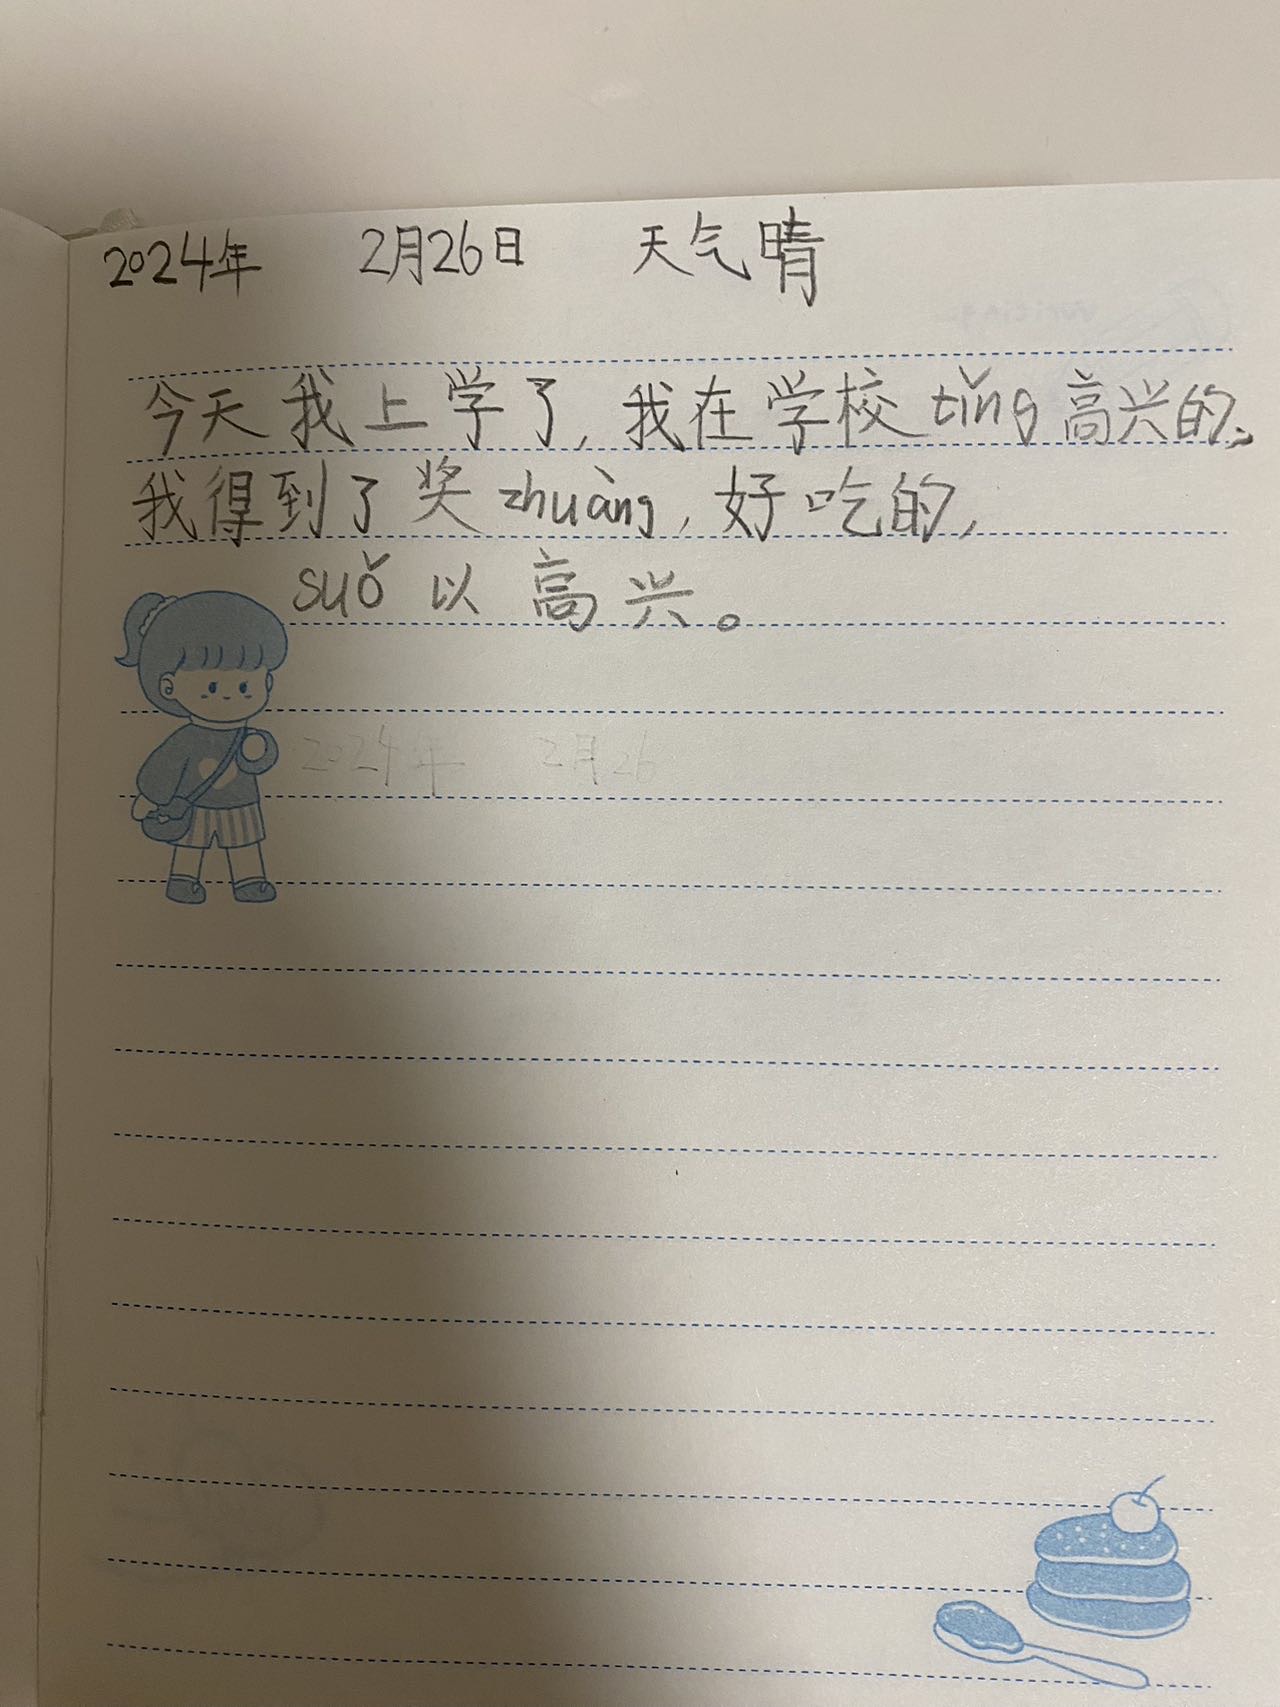 2024年 2月26日 天气晴
今天我上学了,我在学校tǐng高兴的、
我得到了奖zhuàng,好吃的,
suǒ以高兴。
2024年 2月26